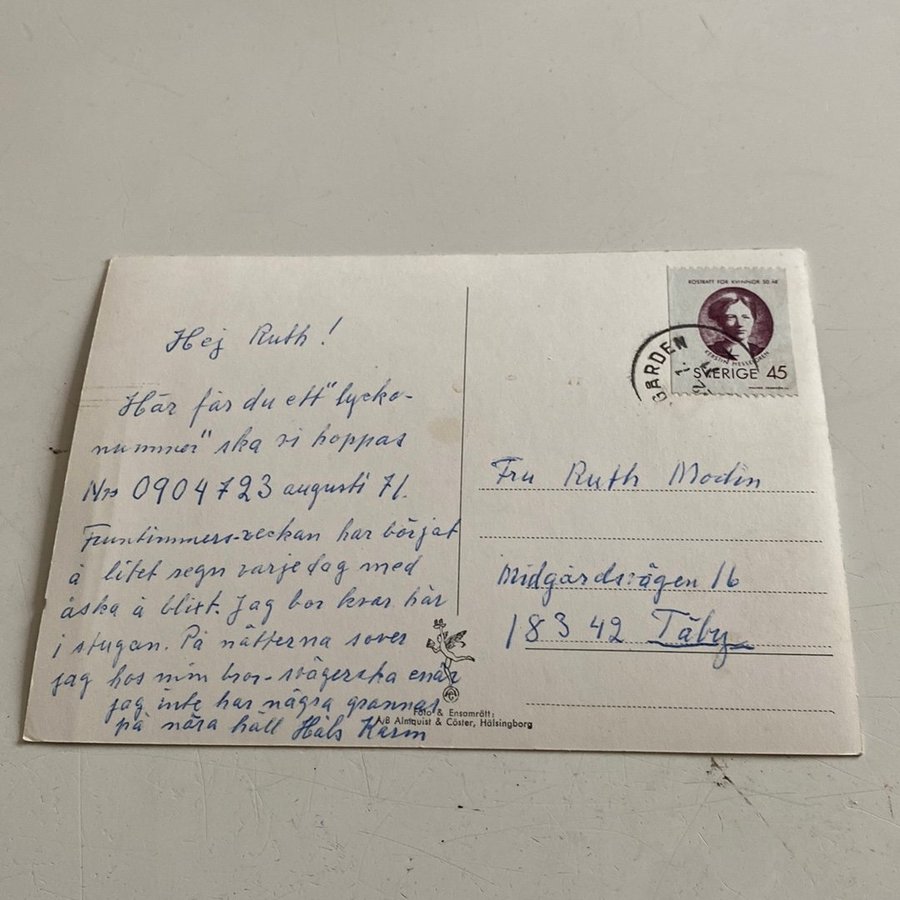 Hej Ruth!
Här får du ett "lycko-
nummer" ska vi hoppas
Nro 0904723 augusti 71.
Fruntimmers-veckan har börjat
å litet regn varje dag med
åska å blixt. Jag bor kvar här
i stugan. På nätterna sover
jag hos min bror-svägerska enär
jag inte har några grannar
på nära håll Häls Karin
RÖSTRÄTT FÖR KVINNOR 50 ÅR
KERSTIN HESSELGREN
SVERIGE 45
GÅRDEN
Fru Ruth Modin
Midgårdsvägen 16
183 42 Täby
Foto & Ensamrätt:
A/B Almquist & Cöster, Hälsingborg